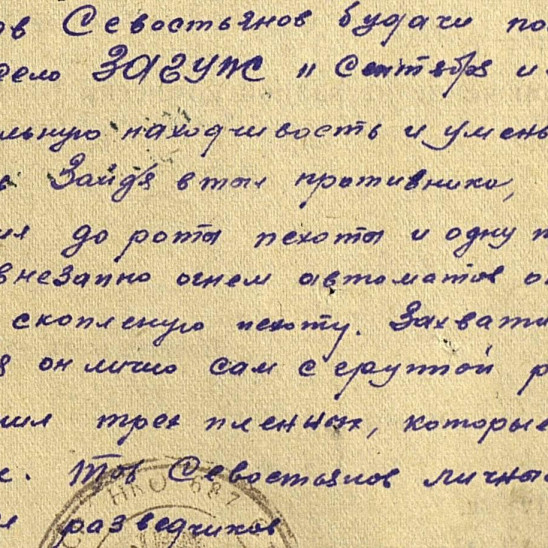 ов Севостьянов будачи по
дело ЗАГУЖ 11 Сентября и
льную находчивость и умень
Зайдя в тыл противника,
до роты пехоты и одну
внезапно огнем автоматов о
скопленую пехоту. Захвати
он лично сам с групой р
ил трех пленных, которые
е. Тов Севостьянов личны
и разведчиков
НКО 687